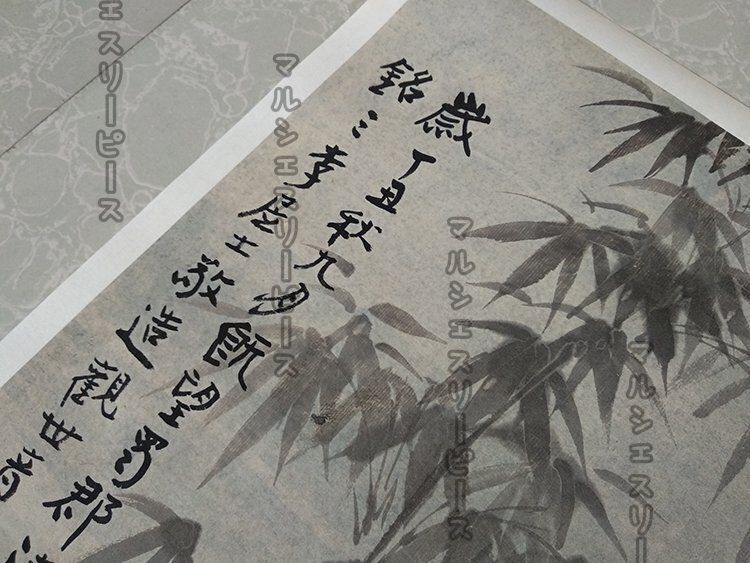 歲丁丑秋九月既望蜀郡
銘李居士敬造觀世
ェスリーピース
マルシェスリーピース
マルシェスリーピース
マルシェスリー